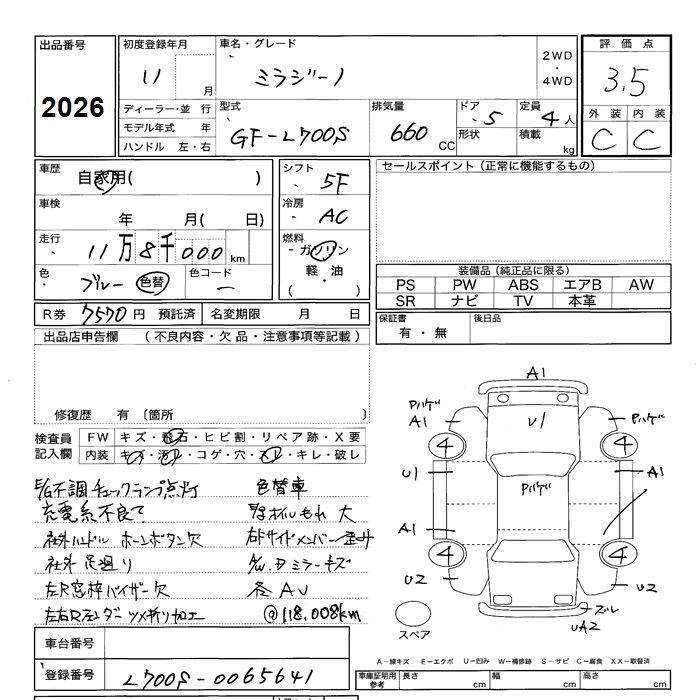 出品番号 初度登録年月 車名・グレード 2WD ・ 4WD 評価点
2026 11 月 ミラジーノ 3.5
ディーラー・並行 型式 排気量 ドア 定員 外装 内装
モデル年式 年 GF-L700S 660 CC ・5 4人 C C
ハンドル 左・右 形状 積載 kg
車歴 自家用( ) シフト ・ 5F セールスポイント(正常に機能するもの)
車検 年 月( 日) 冷房 ・ AC
走行 11万8千000km 燃料 ・ガソリン 軽・油 ・( )
色 ブルー 色替 色コード ー
装備品(純正品に限る)
PS PW ABS エアB AW
SR ナビ TV 本革
R券 7570円 預託済 名変期限 月 日
保証書 有・無 後日品
出品店申告欄 (不良内容・欠品・注意事項等記載)
修復歴 有 〔箇所 〕
検査員記入欄 FW キズ・飛石・ヒビ割・リペア跡・X要
内装 キズ・汚れ・コゲ・穴・スレ・キレ・破レ
E/G不調 チェックランプ点灯 色替車
充電系不良て オイルもれ 大
社外ハンドル ホーンボタン欠 右Fサイドメンバー
社外 足廻り ミラーキズ
左R窓枠バイザー欠 各AU
左右Rフェンダーツメ折り加工 @118,008km
A1
Pハゲ A1 U1 Pハゲ
4 4
U1 Pハゲ A1
A1
4 4
U2 U2
ズレ
UA2
スペア
A-線キズ E-エクボ U-凹み W-補修跡 S-サビ C-腐食 XX-取替済
車台番号
登録番号 L700S-0065641
車庫証明用参考 長さ cm 幅 cm 高さ cm